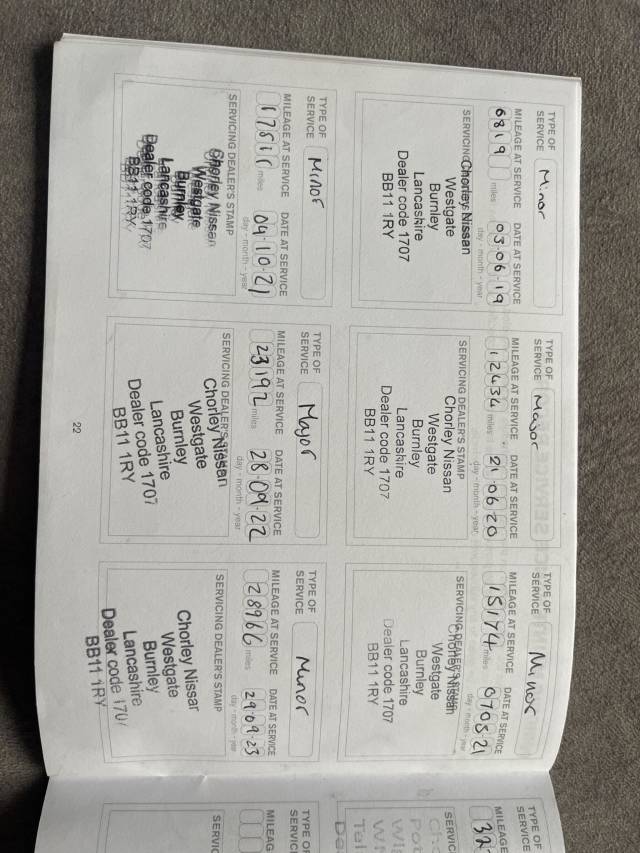 TYPE OF SERVICE Minor
MILEAGE AT SERVICE DATE AT SERVICE
6819 miles 03.06.19
day - month - year
SERVICING
Chorley Nissan
Westgate
Burnley
Lancashire
Dealer code 1707
BB11 1RY
TYPE OF SERVICE Major
MILEAGE AT SERVICE DATE AT SERVICE
12434 miles 21.06.20
day - month - year
SERVICING DEALER'S STAMP
Chorley Nissan
Westgate
Burnley
Lancashire
Dealer code 1707
BB11 1RY
TYPE OF SERVICE Minor
MILEAGE AT SERVICE DATE AT SERVICE
15174 miles 21
day - month - year
SERVICING DEALER'S STAMP
Chorley Nissan
Westgate
Burnley
Lancashire
Dealer code 1707
BB11 1RY
TYPE OF SERVICE Minor
MILEAGE AT SERVICE DATE AT SERVICE
miles 09.10.21
day - month - year
SERVICING DEALER'S STAMP
Chorley Nissan
Westgate
Burnley
Lancashire
Dealer code 1707
BB11 1RY
TYPE OF SERVICE Major
MILEAGE AT SERVICE DATE AT SERVICE
23192 miles 28.09.22
day - month - year
SERVICING DEALER'S STAMP
Chorley Nissan
Westgate
Burnley
Lancashire
Dealer code 1707
BB11 1RY
TYPE OF SERVICE Minor
MILEAGE AT SERVICE DATE AT SERVICE
28966 miles 29.09.23
day - month - year
SERVICING DEALER'S STAMP
Chorley Nissan
Westgate
Burnley
Lancashire
Dealer code 170
BB11 1RY
22
TYPE OF
SERVICE
MILEAG
32
SERVIC
TYPE OF
SERVIC
MILEAG
SERVIC